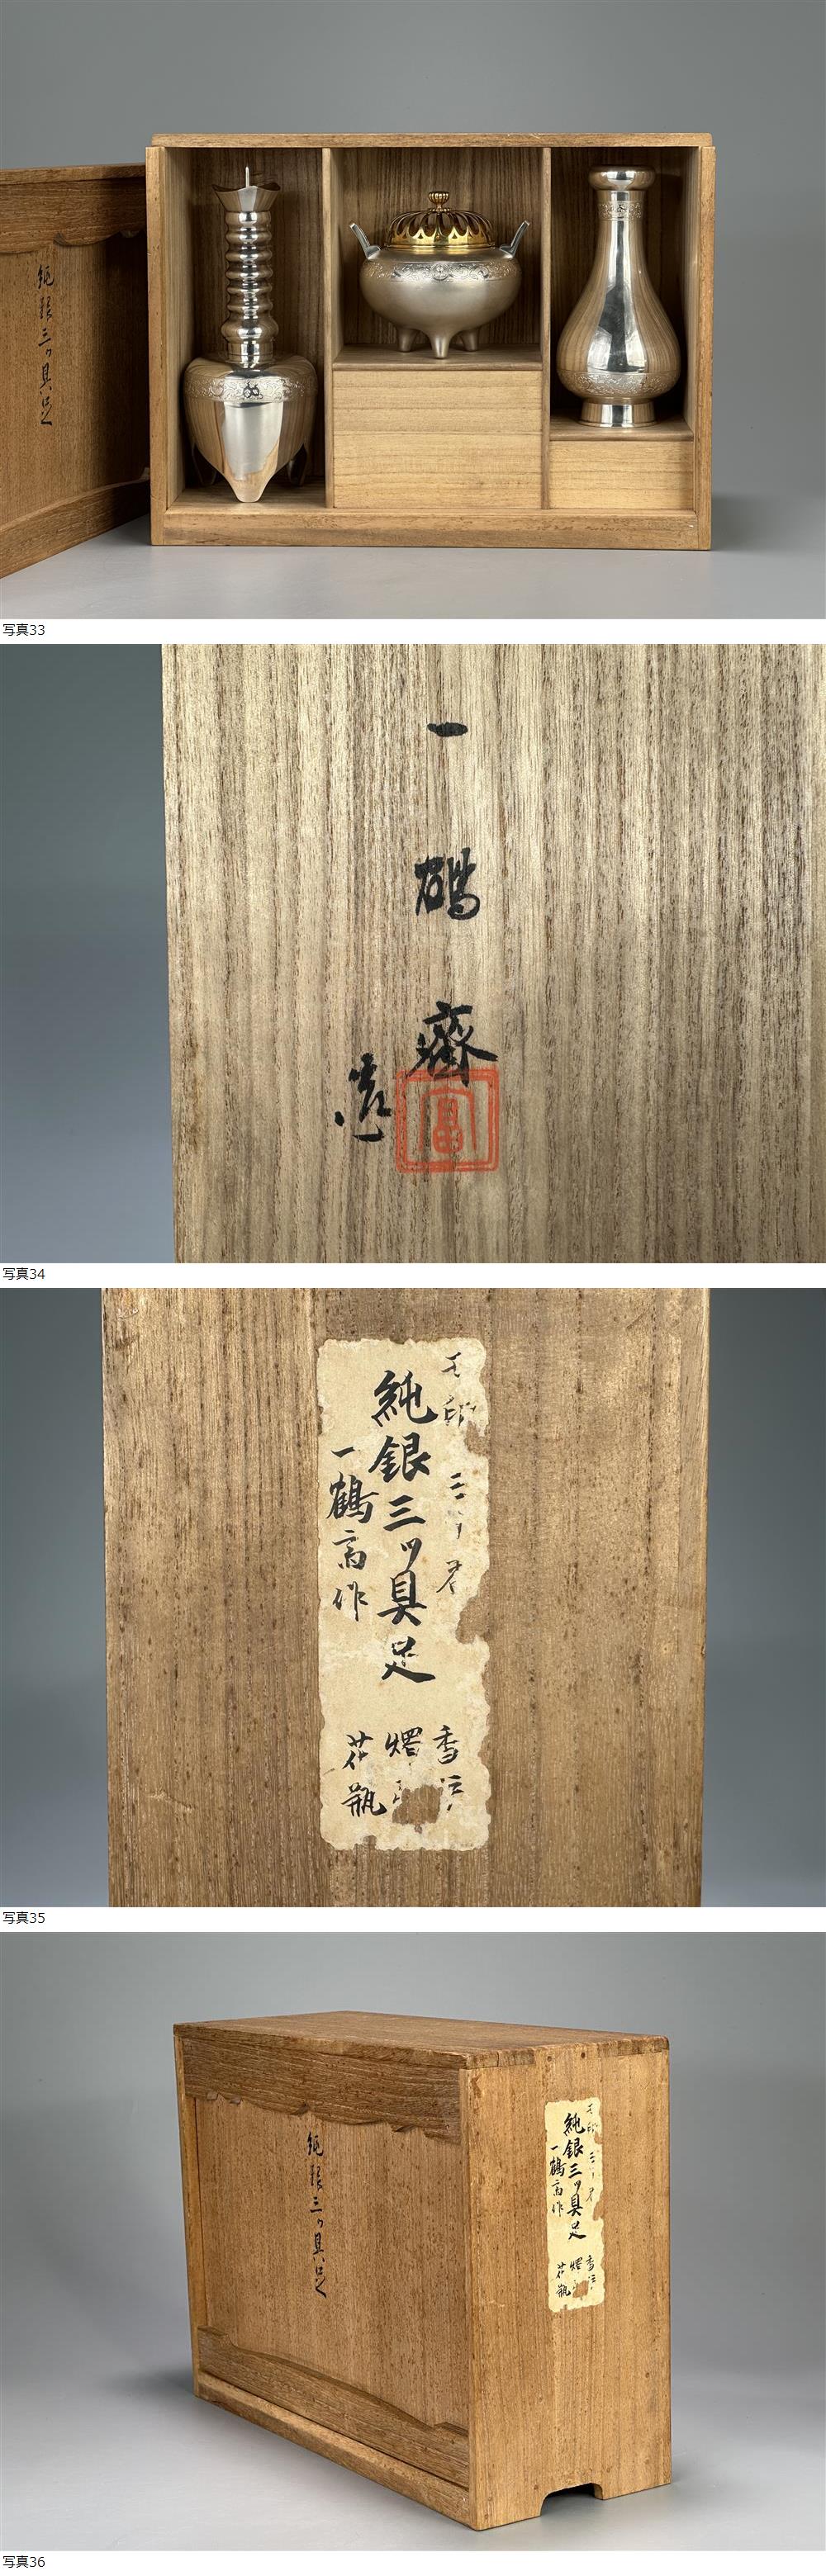 純銀三ツ具足
写真33
一鶴斎
造
富
写真34
純銀三ツ具足
一鶴斎作
香
花瓶
写真35
純銀三ツ具足
純銀三ツ具足
一鶴斎作
香
花瓶
写真36